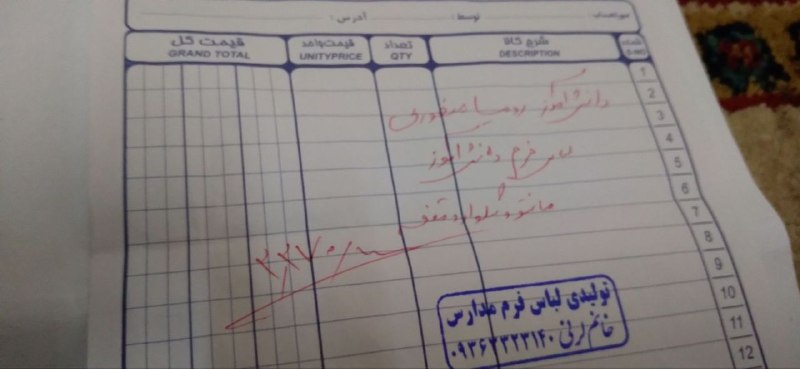 صورتحساب: توسط: آدرس:
شماره شرح کالا تعداد قیمت واحد قیمت کل
DESCRIPTION QTY UNITYPRICE GRAND TOTAL
1
2
دانش آموز رومیسا صفوری
3
4
لباس فرم دانش آموز
5
6
مانتو و شلوار و مقنعه
7
8
9
10
11
12
تولیدی لباس فرم مدارس
خانم لرنی ۰۹۳۶۳۳۲۳۱۴۰